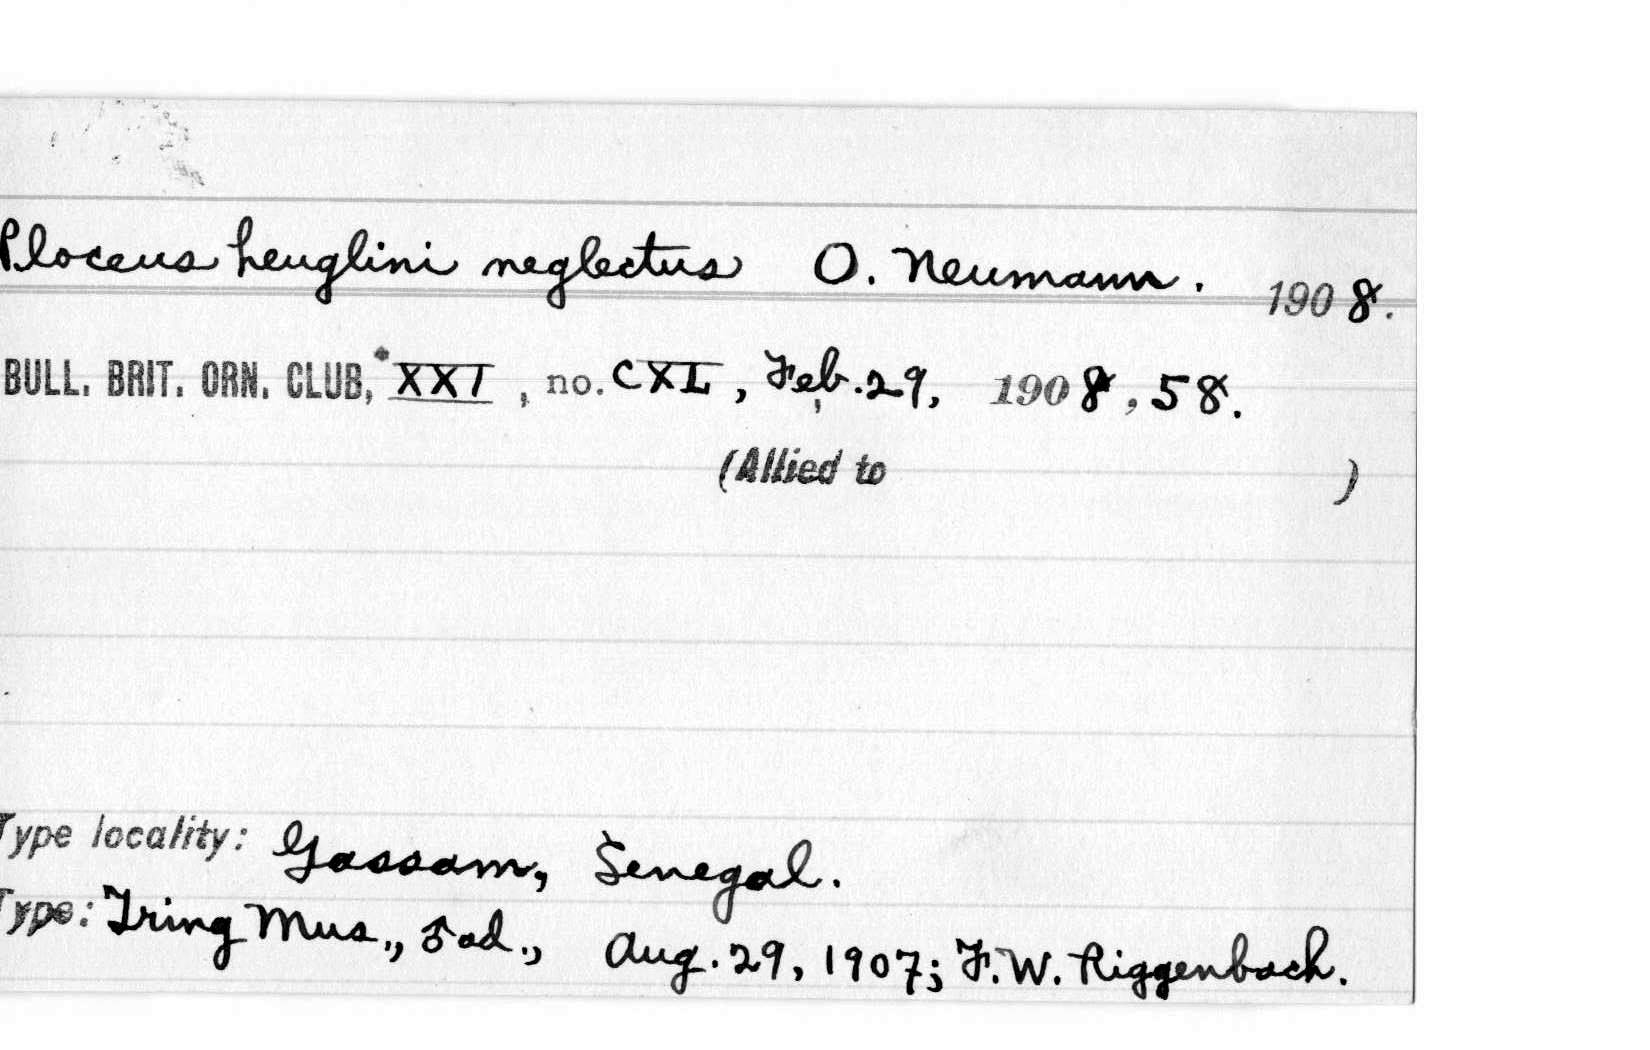 Ploceus heuglini neglectus O. Neumann. 1908.
BULL. BRIT. ORN. CLUB, XXI, no. CXL, Feb. 29, 1908, 58.
(Allied to )
Type locality: Gassam, Senegal.
Type: Tring Mus., ♂ ad., Aug. 29, 1907; F. W. Riggenbach.